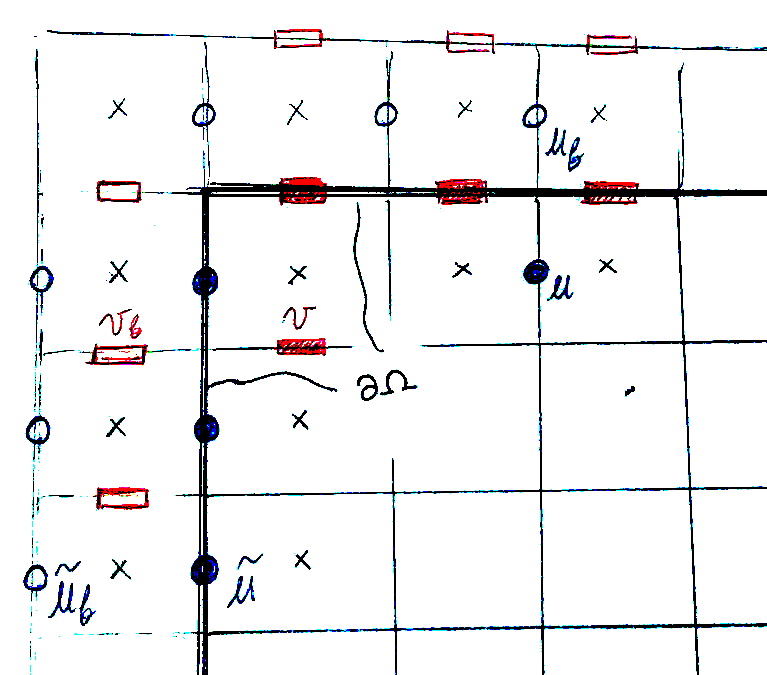 u_b
u
v_b v
∂Ω
ũ_b ũ